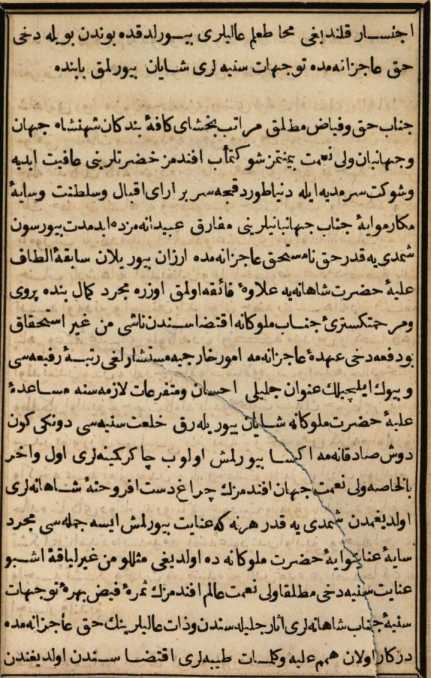 اجتسار قلندیغی محاط علم عالیلری بیورلدقده بوندن بویله دخی
حق عاجزانه مده توجهات سنیه لری شایان بیورلمق بابنده
جناب حق وفیاض مطلق مراتب بخشای کافهٔ بندکان شهنشاه جهان
وجهانبان ولی نعمت بیمنتمز شوکتمآب افندمز حضرتلرینی عافیت ابدیه
وشوکت سرمدیه ایله دنیا طوردقجه سریر ارای اقبال وسلطنت وسایهٔ
مکارموایهٔ جناب جهانبانیلرینی مفارق عبیدانه مزده ابدمدت بیورسون
شمدی یه قدر حق نامستحق عاجزانه مده ارزان بیوریلان سابقهٔ الطاف
علیهٔ حضرت شاهانه یه علاوهٔ فائقه اولمق اوزره مجرد کمال بنده پروری
ومرحمتکستریٔ جناب ملوکانه اقتضاسندن ناشی من غیر استحقاق
بودفعه دخی عهدهٔ عاجزانه مه امور خارجیه مستشارلغی رتبهٔ رفیعه سی
وبیوك ایلچیلك عنوان جلیلی احسان ومتفرعات لازمه سنه مساعدهٔ
علیهٔ حضرت ملوکانه شایان بیوریله رق خلعت سنیه سی دونکی کون
دوش صادقانه مه اکسا بیورلمش اولوب چاکر کمینه لری اول واخر
بالخاصه ولی نعمت جهان افندمزك چراغ دست افروختهٔ شاهانه لری
اولدیغمدن شمدی یه قدر هرنه که عنایت بیورلمش ایسه جمله سی مجرد
سایهٔ عنایتوایهٔ حضرت ملوکانه ده اولدیغی مثللو من غیر لیاقة اشبو
عنایت سنیه دخی مطلقا ولی نعمت عالم افندمزك ثمرهٔ فیض بهرهٔ توجهات
سنیهٔ جناب شاهانه لری اثار جلیله سندن وذات عالیلرینك حق عاجزانه مده
درکار اولان همم علیه وکلمات طیبه لری اقتضاسندن اولدیغندن